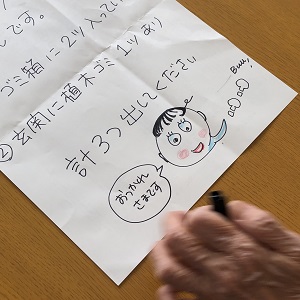 しです。
ゴミ箱に2ツ入ってい
② 玄関に植木ゴミ 1ツあり
計3つ出してください
おつかれ
さまです